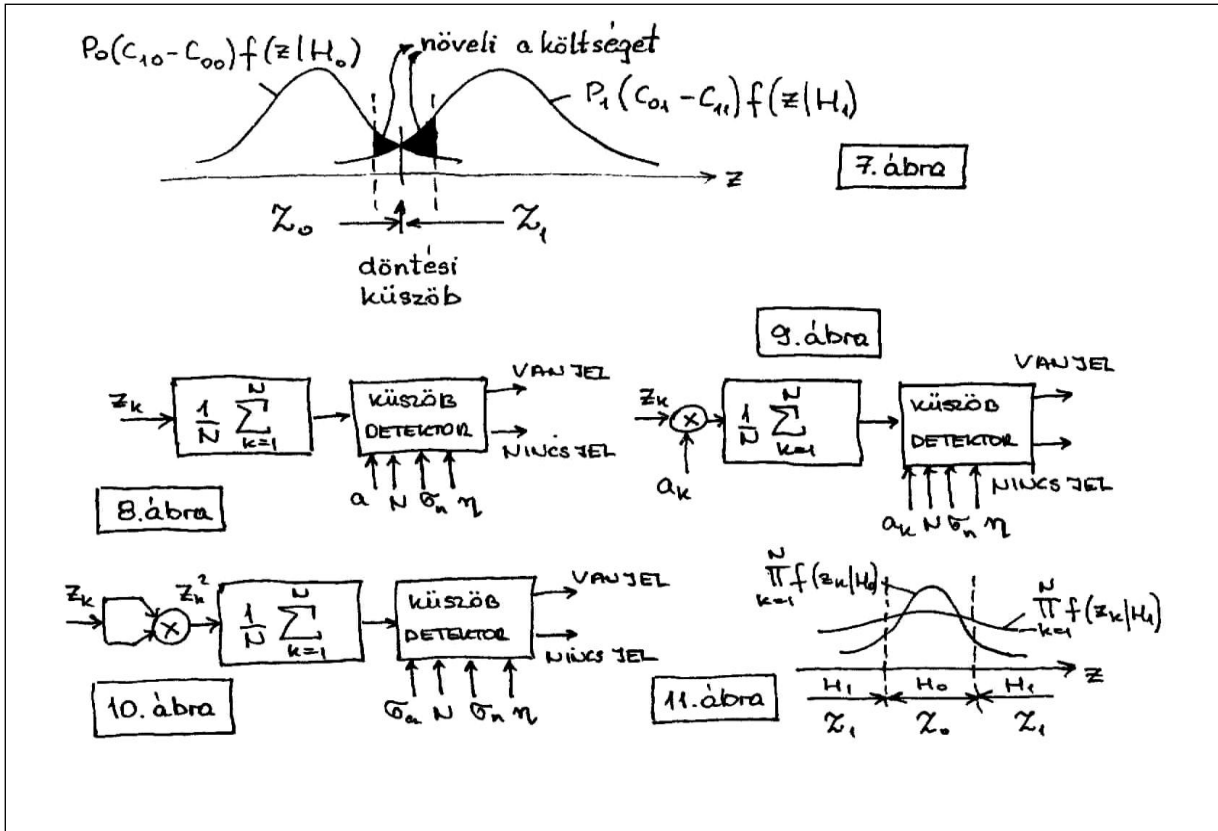 P₀(C₁₀-C₀₀)f(z|H₀)
növeli a költséget
P₁(C₀₁-C₁₁)f(z|H₁)
z
7. ábra
Z₀ Z₁
döntési
küszöb
9. ábra
z_k
1/N ∑_{k=1}^{N}
KÜSZÖB
DETEKTOR
VAN JEL
NINCS JEL
a N σₙ η
8. ábra
z_k
×
a_k
1/N ∑_{k=1}^{N}
KÜSZÖB
DETEKTOR
VAN JEL
NINCS JEL
a_k N σₙ η
z_k
×
z_k²
1/N ∑_{k=1}^{N}
KÜSZÖB
DETEKTOR
VAN JEL
NINCS JEL
σₐ N σₙ η
10. ábra
∏_{k=1}^{N} f(z_k|H₀)
∏_{k=1}^{N} f(z_k|H₁)
z
H₁ H₀ H₁
Z₁ Z₀ Z₁
11. ábra